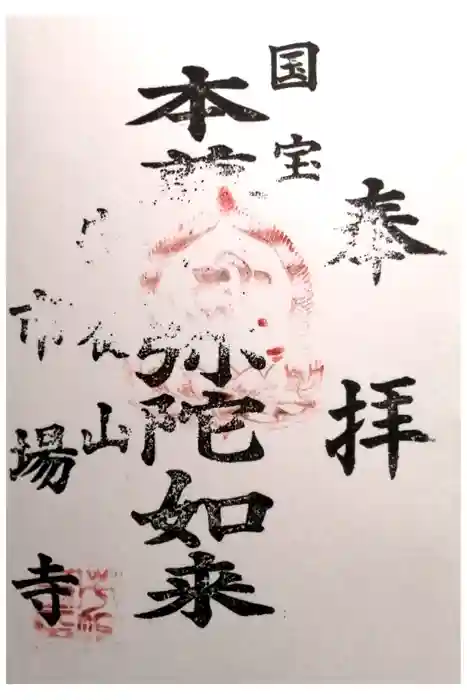 奉拝
国宝
本尊 弥陀如来
山
市場寺